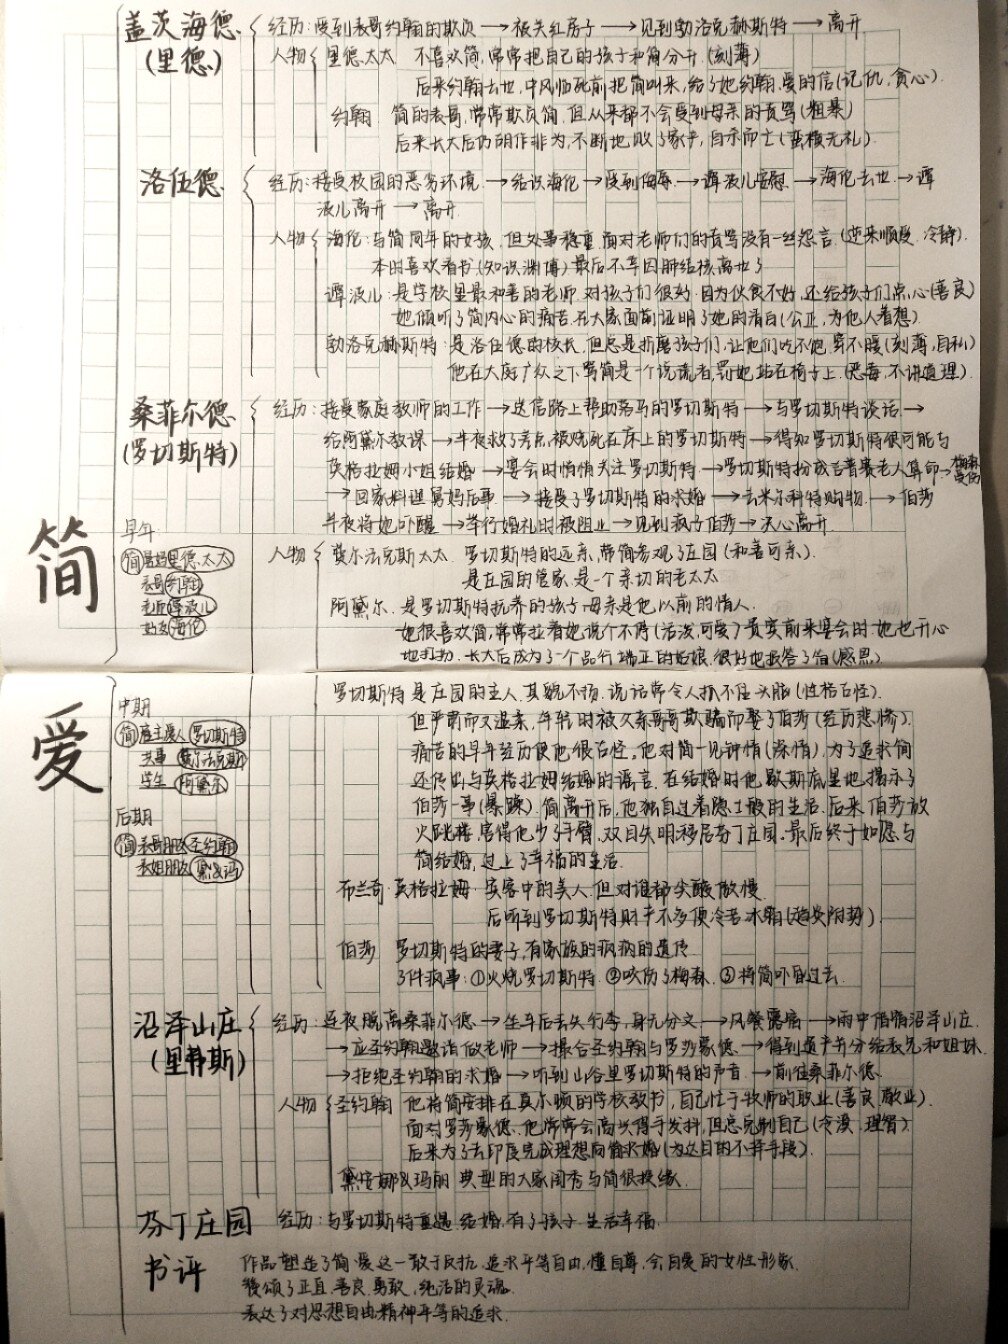 简爱
盖茨海德
(里德)
经历:受到表哥约翰的欺负→被关红房子→见到勃洛克赫斯特→离开
人物
里德太太 不喜欢简,常常把自己的孩子和简分开.(刻薄)
后来约翰去世,中风临死前把简叫来,给了她约翰·爱的信(记仇,贪心)
约翰 简的表哥,常常欺负简,但从来都不会受到母亲的责骂(粗暴)
后来长大后仍胡作非为,不断地败了家产,自杀而亡(蛮横无礼)
洛伍德
经历:接受校园的恶劣环境→结识海伦→受到侮辱→谭波儿安慰→海伦去世→谭
波儿离开→离开.
人物
海伦:与简同年的女孩,但处事稳重,面对老师们的责骂没有一丝怨言.(逆来顺受,冷静).
本时喜欢看书(知识渊博)最后不幸因肺结核离世了
谭波儿:是学校里最和善的老师.对孩子们很好.因为伙食不好,还给孩子们点心(善良)
她倾听了简内心的痛苦.在大家面前证明了她的清白(公正,为他人着想).
勃洛克赫斯特:是洛伍德的校长,但总是折磨孩子们,让他们吃不饱,穿不暖(刻薄,自私)
他在大庭广众之下骂简是一个说谎者,罚她站在椅子上.(恶毒,不讲道理)
桑菲尔德
(罗切斯特)
经历:接受家庭教师的工作→送信路上帮助落马的罗切斯特→与罗切斯特谈话→
给阿黛尔教课→半夜救了差点被烧死在床上的罗切斯特→得知罗切斯特很可能与
英格拉姆小姐结婚→宴会时悄悄关注罗切斯特→罗切斯特扮成吉普赛老人算命→梅森受伤
→回家料理舅妈后事→接受了罗切斯特的求婚→去米尔科特购物.→伯莎
半夜将她吓醒→举行婚礼时被阻止→见到疯子伯莎→决心离开.
人物
费尔法克斯太太.罗切斯特的远亲,带简参观了庄园(和善可亲).
是庄园的管家.是一个亲切的老太太
阿黛尔.是罗切斯特抚养的孩子.母亲是他以前的情人.
她很喜欢简,常常拉着她说个不停(活泼,可爱)贵宾前来宴会时她也开心
地打扮.长大后成为了一个品行端正的姑娘.很好地报答了简(感恩).
早年
简 舅妈里德太太
表哥约翰
老师谭波儿
好友海伦
罗切斯特是庄园的主人.其貌不扬,说话常令人抓不住头脑(性格古怪).
但严肃而又温柔,年轻时被父亲哥哥欺骗而娶了伯莎(经历悲惨).
痛苦的早年经历使他很古怪.他对简一见钟情(深情).为了追求简
还传出与英格拉姆结婚的谣言.在结婚时他歇斯底里地揭示了
伯莎一事(暴躁).简离开后,他独自过着隐士般的生活.后来伯莎放
火跳楼,害得他少了手臂,双目失明,移居芬丁庄园.最后终于如愿与
简结婚,过上了幸福的生活.
布兰奇·英格拉姆·宾客中的美人.但对谁都尖酸傲慢
后听到罗切斯特财产不多便冷若冰霜(趋炎附势)
伯莎 罗切斯特的妻子,有家族的疯病的遗传
3件疯事:①火烧罗切斯特.②咬伤了梅森.③将简吓昏过去.
中期
简 雇主爱人 罗切斯特
同事 费尔法克斯
学生 阿黛尔
后期
简 表哥朋友 圣约翰
表姐朋友 黛&玛
沼泽山庄
(里弗斯)
经历:连夜脱离桑菲尔德→坐车后丢失行李,身无分文→风餐露宿→雨中倒卧沼泽山庄.
→应圣约翰邀请做老师→撮合圣约翰与罗莎蒙德→得到遗产并分给表兄和姐妹.
→拒绝圣约翰的求婚→听到山谷里罗切斯特的声音→前往桑菲尔德.
人物
圣约翰 他将简安排在莫尔顿的学校教书,自己忙于牧师的职业(善良,敬业).
面对罗莎蒙德.他常常会高兴得手发抖,但总克制自己(冷漠,理智).
后来为了去印度完成理想向简求婚(为达目的不择手段).
黛安娜&玛丽 典型的大家闺秀与简很投缘.
芬丁庄园
经历:与罗切斯特重遇.结婚,有了孩子.生活幸福.
书评
作品塑造了简·爱这一敢于反抗,追求平等自由,懂自尊,会自爱的女性形象.
赞颂了正直,善良,勇敢,纯洁的灵魂.
表达了对思想自由精神平等的追求.